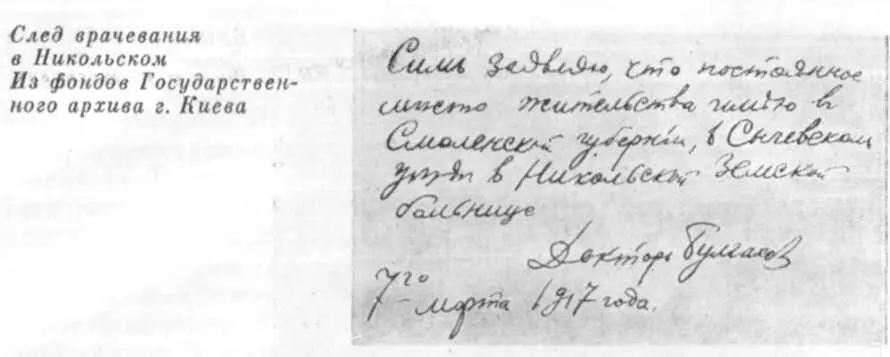 След врачевания
в Никольском
Из фондов Государствен-
ного архива г. Киева
Симъ заявляю, что постоянное
место жительства имѣю в
Смоленской губернiи, в Сычевском
уѣзде в Никольской Земской
больнице
Докторъ Булгаков
7го марта 1917 года.